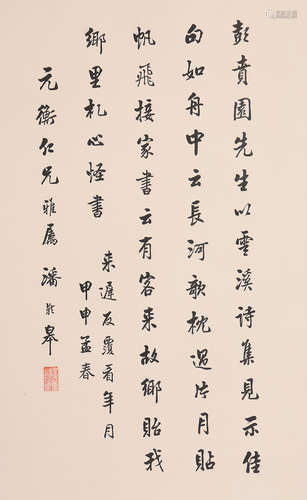 彭賁園先生以雲溪詩集見示佳
句如舟中云長河歌枕過片月貼
帆飛接家書云有客来故鄉貽我
鄉里札心怪書
来遲反覆看年月
甲申孟春
元衡仁兄雅屬 潘齡皋